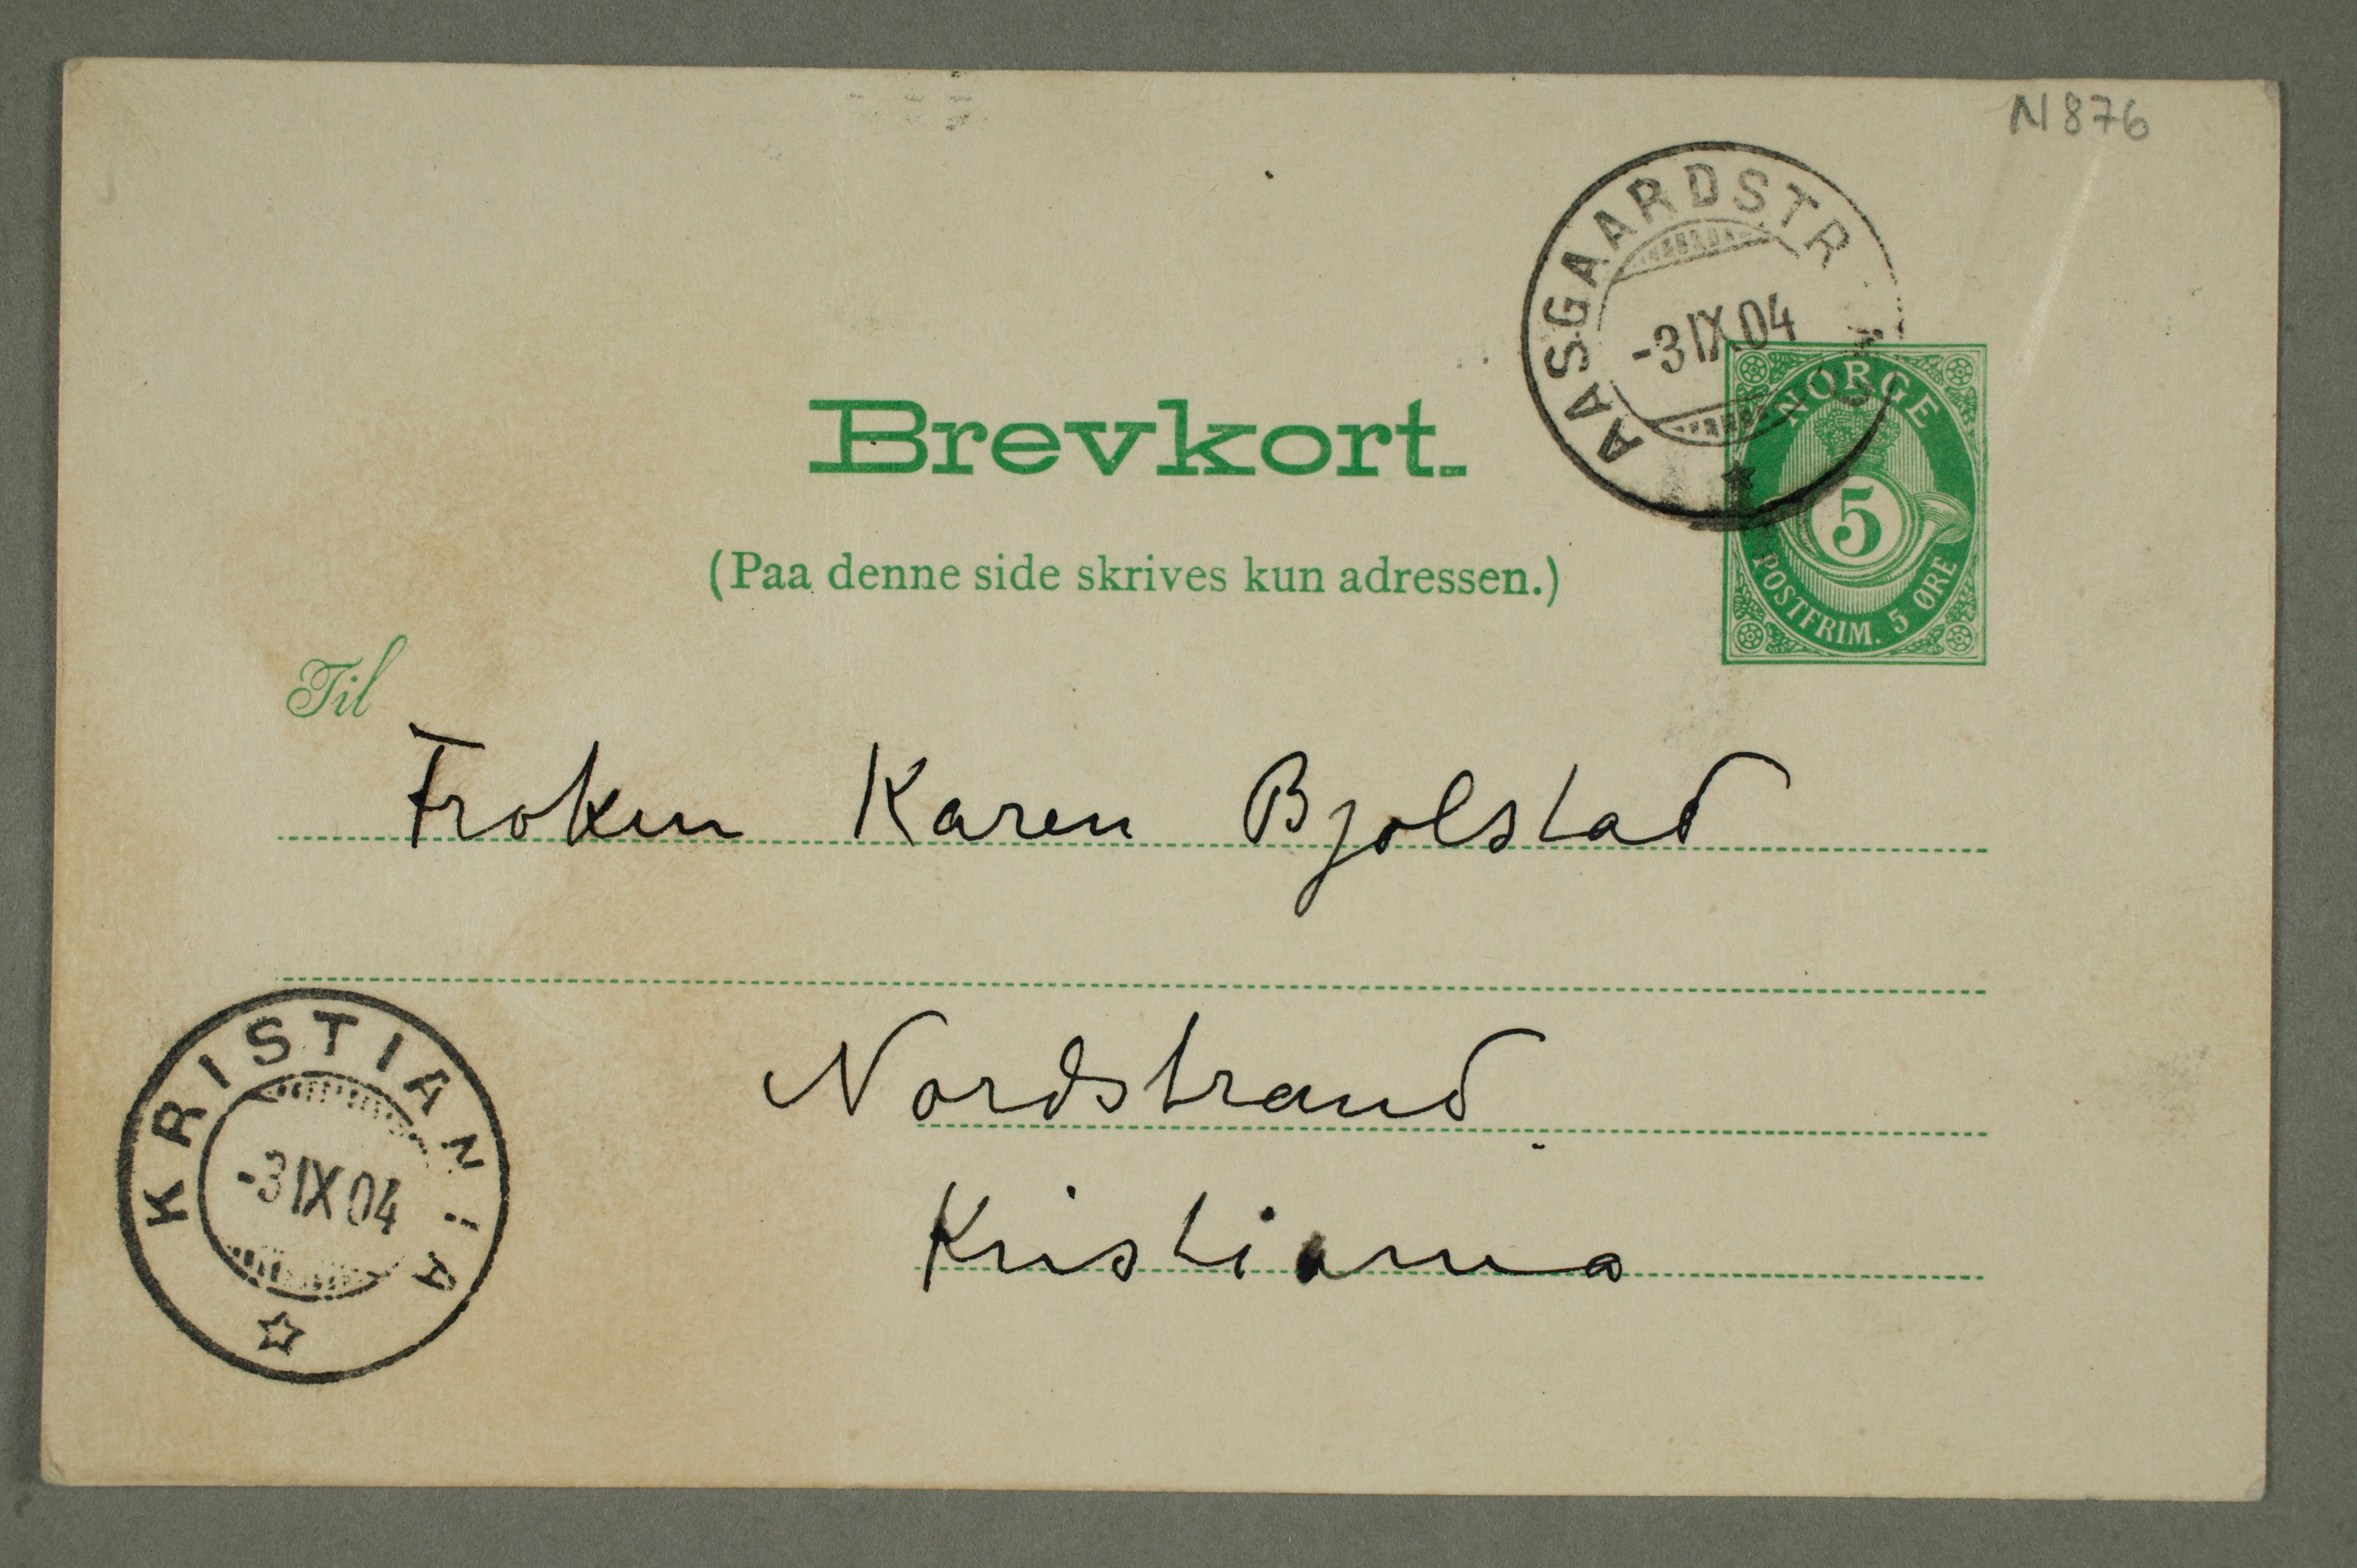 N 876
AASGAARDSTRAND
-3 IX 04
Brevkort.
NORGE
5
POSTFRIM. 5 ØRE
(Paa denne side skrives kun adressen.)
Til
Froken Karen Bjolstad
Nordstrand
Kristiania
KRISTIANIA
-3 IX 04